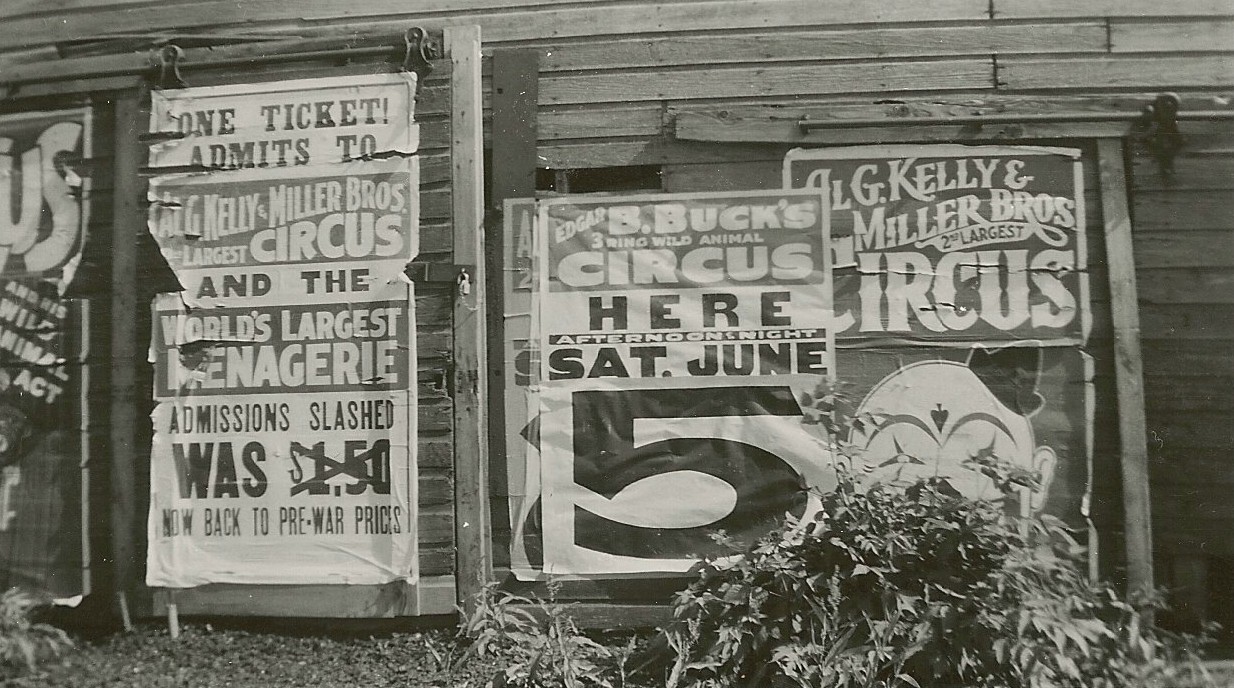 US
AND HIS
WILD
ANIMAL
ACT
ONE TICKET!
ADMITS TO
AL G. KELLY & MILLER BROS.
LARGEST CIRCUS
AND THE
WORLD'S LARGEST
MENAGERIE
ADMISSIONS SLASHED
WAS $1.50
NOW BACK TO PRE-WAR PRICES
A
2
EDGAR B. BUCK'S
3 RING WILD ANIMAL
CIRCUS
HERE
AFTERNOON & NIGHT
SAT. JUNE
5
AL G. KELLY &
MILLER BROS
2ND LARGEST
CIRCUS